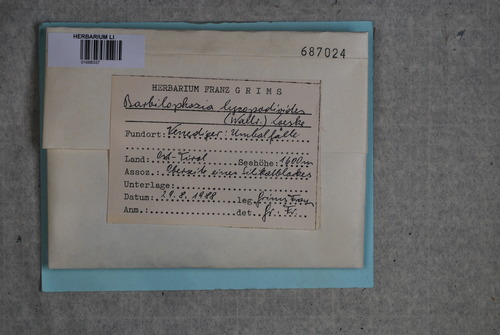 HERBARIUM LI
687024
HERBARIUM FRANZ GRIMS
Barbilophozia lycopodioides
(Wallr.) Loeske
Fundort: Venediger: Umbalfälle
Land: Ost-Tirol Seehöhe: 1600m
Assoz. eines Silikatblockes
Unterlage:
Datum: 29.8.1988 leg. Grims Franz
Anm.: det. Gr. Fr.